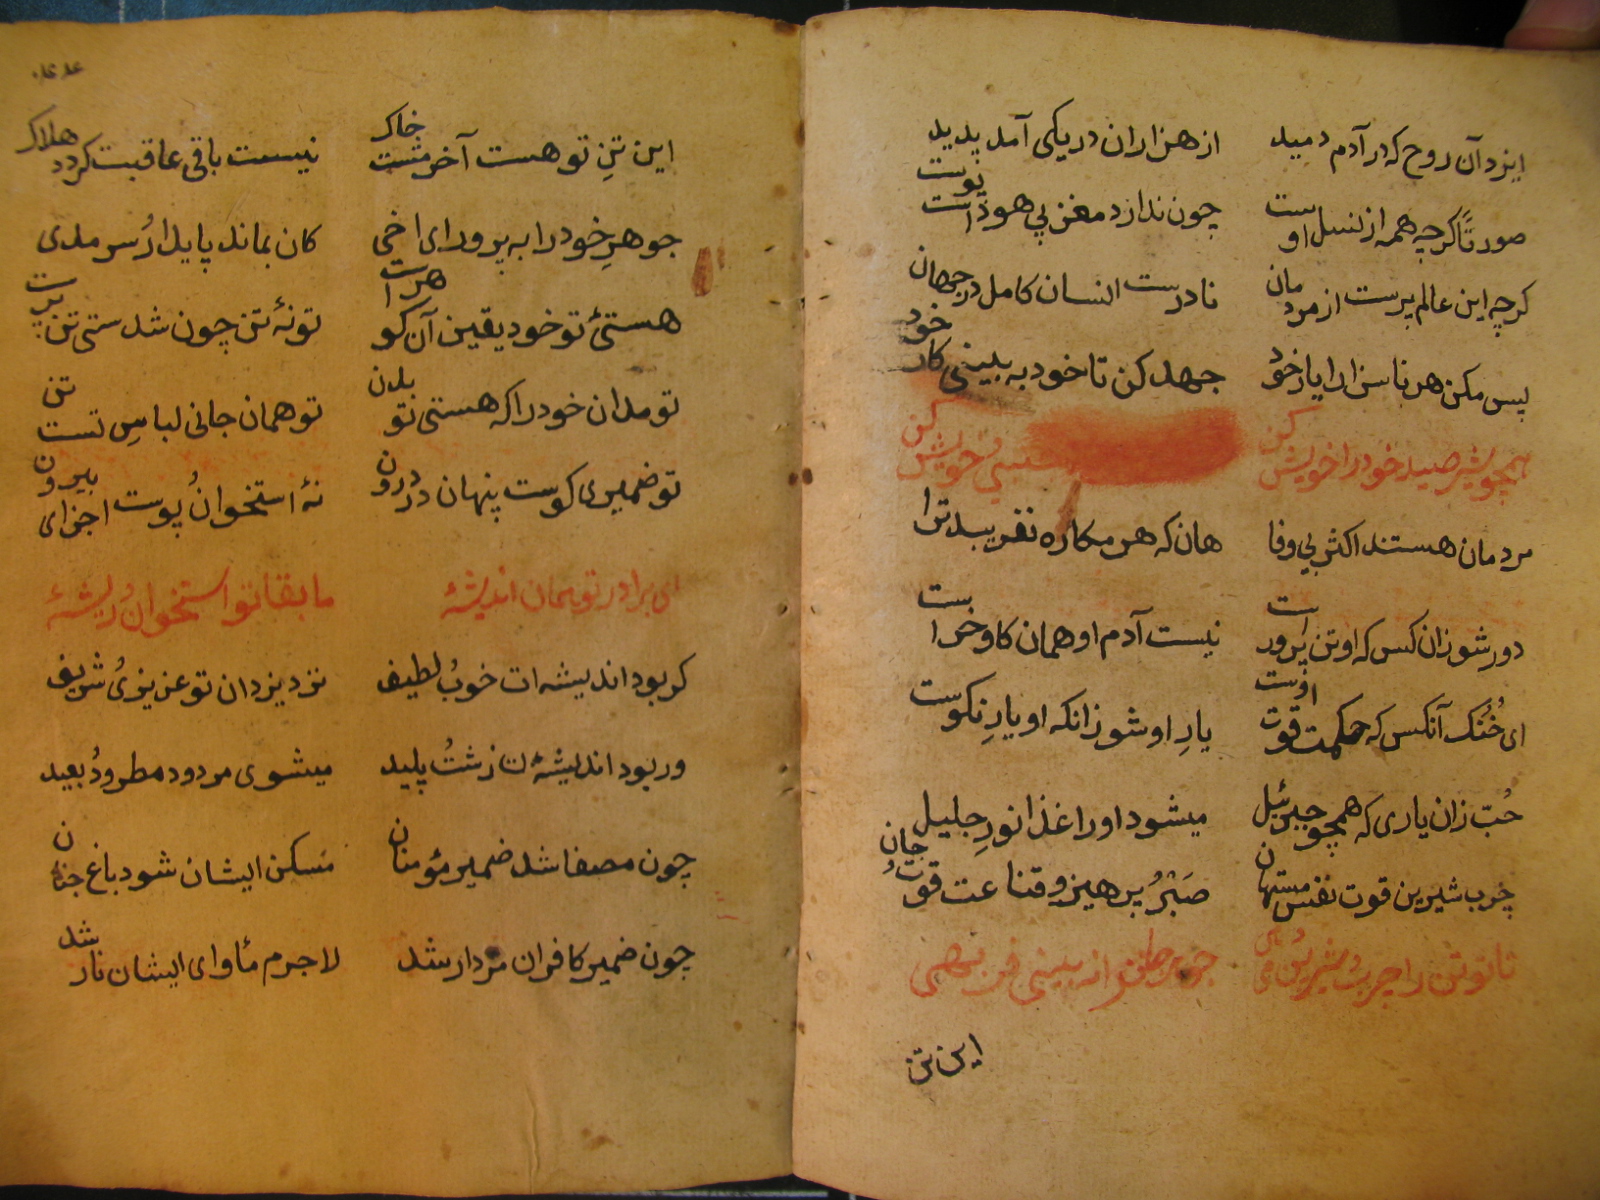 ایزد آن روح که در آدم دمید از هزاران در یکی آمد پدید
صورتًا کرچه همه از نسل اوست چون ندارد مغز بی هوده پوست است
کرچه این عالم پرست از مردمان نادرست انسان کامل در جهان
پس مکن هر ناسزا را یار خود جهد کن تا خود به بینی کار خود
همچو شیر صید خود را خویش کن خویش کن
مردمان هستند اکثر بی وفا هان که هر مکاره نفریبد ترا
دور شو زان کس که او تن پرورست نیست آدم او همان کاو خرست
ای خُنُک آنکس که حکمت قوت اوست یارِ او شو زانکه او یارِ نکوست
حُبّ زان یاری که همچو جبرئیل میشود او را غذا نورِ جلیل
چرب شیرین قوت نفس مستهان صَبْرُ پرهیز و قناعت قوت جان
تا تو تن را چرب شیرین جوهر نه بینی فربهی
این تن
این تنِ تو هست آخر مشت خاک نیست باقی عاقبت کردد هلاک
جوهرِ خود را به پرور ای اخی کان بماند پایدارُ سرمدی
هستئ تو خود یقین آن کوهرست تو نۀ تن چون شدستی تن پرست
تو مدان خود را که هستی تو بدن تو همان جانی لباسِ تست تن
تو ضمیری کوست پنهان در درون نۀ استخوانُ پوست اجزای بیرون
ای برادر تو همان اندیشۀ مابقا تو استخوانُ ریشۀ
کر بود اندیشه ات خوبُ لطیف نزد یزدان تو عزیزیُ شریف
ور بود اندیشۀ ت زشتُ پلید میشوی مردود مطرودُ بعید
چون مصفا شد ضمیر مؤمنان مَسکن ایشان شود باغ جنان
چون ضمیر کافران مردار شد لاجرم مأوای ایشان نار شد